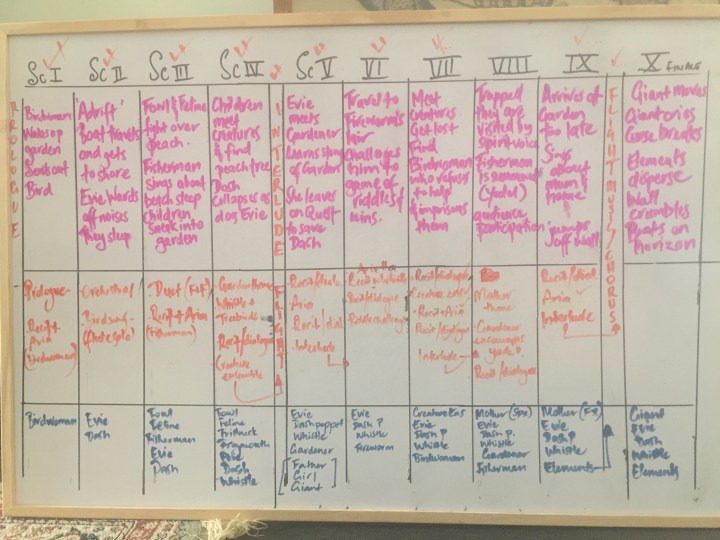 Sc I
Sc II
Sc III
Sc IV
Sc V
VI
VII
VIII
IX
X FINALE
PROLOGUE
Birdwoman
Wakes up
garden
Sends out
Bird
'Adrift'
Boat travels
and gets
to shore
Evie Wards
off noises
They sleep
Fowl & Feline
fight over
peach.
Fisherman
sings about
beach sleep
children
sneak into
garden
Children
meet
creatures
& find
peach tree
Dash
collapses as
does Evie
INTERLUDE
FLIGHT
Evie
meets
Gardener
Learns story
of Garden
She leaves
on Quest
to save
Dash
Travel to
Fireworm's
lair
Challenges
him to
game of
riddles &
wins.
Meet
creatures
Get lost
Find
Birdwoman
who refuses
to help
& imprisons
them
Trapped
they are
visited by
spirit voice
Fisherman
is summoned
(Yodel)
audience
participation
Arrives at
Garden
too late
Sings
about
mum &
home
jumps
off wall
FLIGHT MUSIC/CHORUS
Giant moves
Giant cries
Curse breaks
Elements
disperse
Wall
crumbles
Boats on
horizon
Prologue-
Recit +
Aria
(Birdwoman)
Orchestral
Birdsong-
Duet (F+F)
Recit + Aria
(Fisherman)
Garden theme
Whistle +
Recit/dialogue
Creature
ensemble
Aria
Recit/dial
Interlude
Recit/dialogue
Recit/dialogue
Creature ens
Recit + Aria
Recit/dialogue
Interlude
Mother
theme
encourages
yodel
Recit/dialogue
Recit/dial
Aria
Interlude
Birdwoman
Evie
Dash
Fowl
Feline
Fisherman
Evie
Dash
Fowl
Feline
Evie
Dash
Whistle
Evie
Dash puppet
Whistle
Gardener
[Father
Girl
Giant]
Evie
Dash P
Whistle
Fireworm
Creature Ens
Evie
Dash P
Whistle
Birdwoman
Mother (Spx)
Evie
Dash P.
Whistle
Gardener
Fisherman
Evie
Dash P
Whistle
Elements
Giant
Evie
Dash
Whistle
Elements